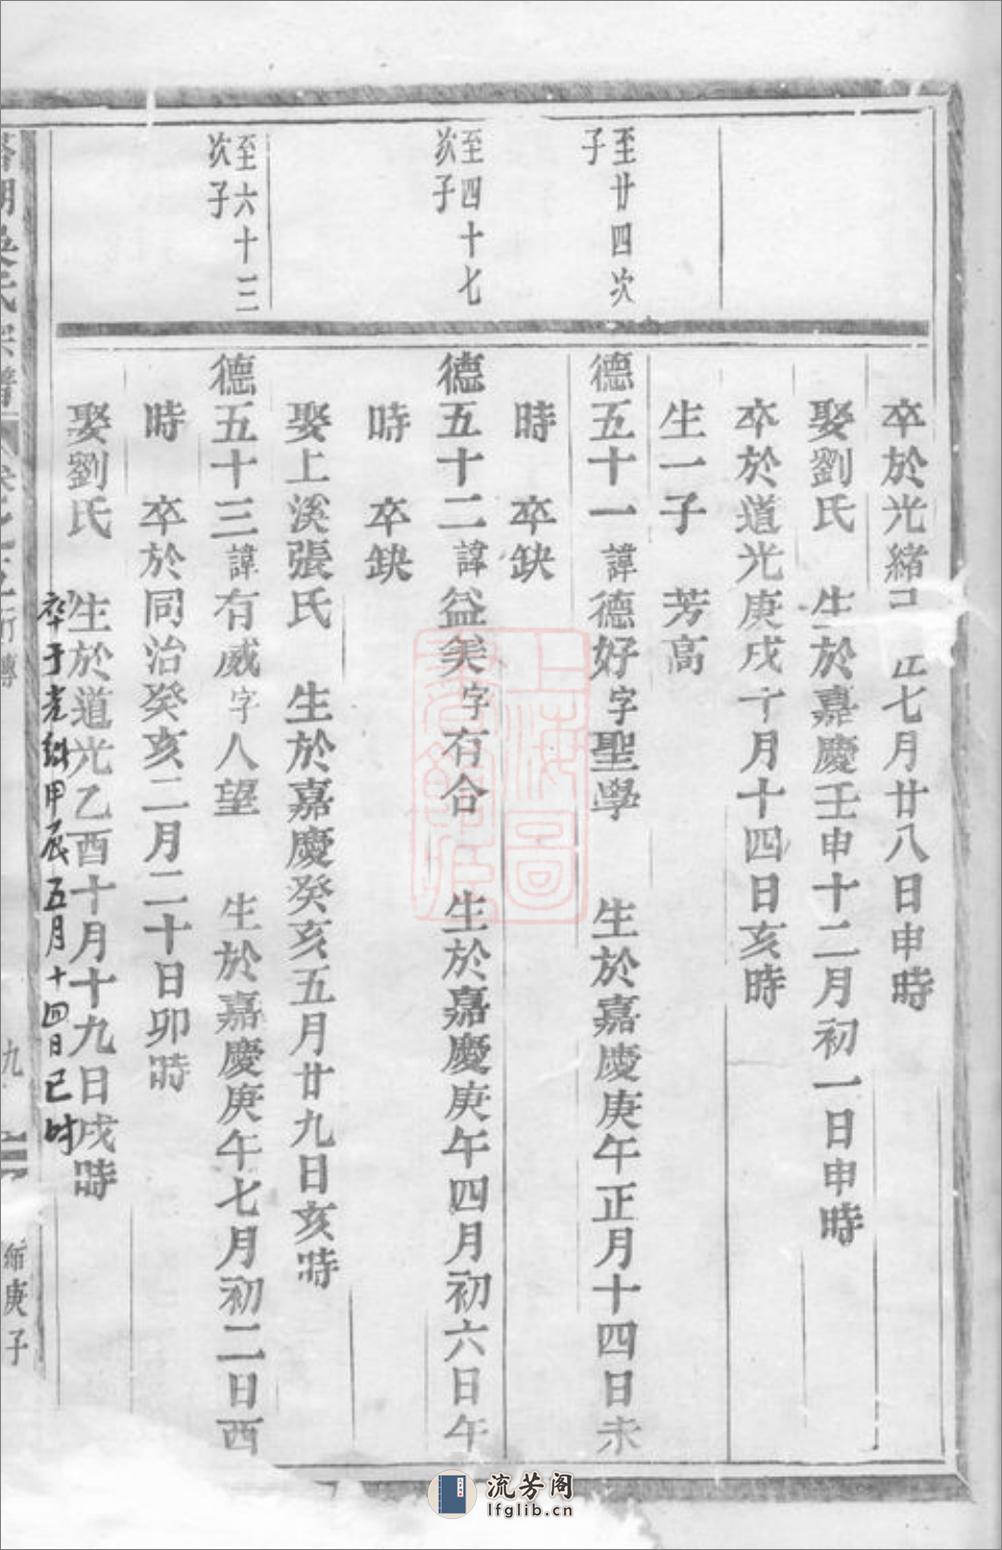 卒於光緒己 正七月廿八日申時
娶劉氏 生於嘉慶壬申十二月初一日申時
卒於道光庚戌十月十四日亥時
生一子 芳高
至廿四次
子
德五十一諱德好字聖學 生於嘉慶庚午正月十四日未
時 卒缺
至四十七
次子
德五十二諱益美字有合 生於嘉慶庚午四月初六日午
時 卒缺
娶上溪張氏 生於嘉慶癸亥五月廿九日亥時
至六十三
次子
德五十三諱有威字人望 生於嘉慶庚午七月初二日酉
時 卒於同治癸亥二月二十日卯時
娶劉氏 生於道光乙酉十月十九日戌時
卒于光緒甲辰五月十四日巳時
氏宗譜
九
庚子
上海圖
流芳阁
lfglib.cn